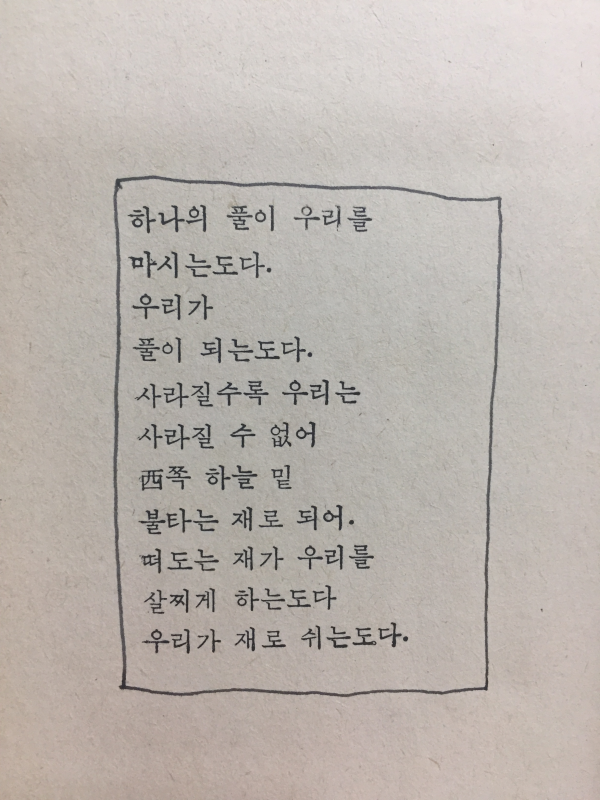 하나의 풀이 우리를
마시는도다.
우리가
풀이 되는도다.
사라질수록 우리는
사라질 수 없어
西쪽 하늘 밑
불타는 재로 되어.
떠도는 재가 우리를
살찌게 하는도다
우리가 재로 쉬는도다.